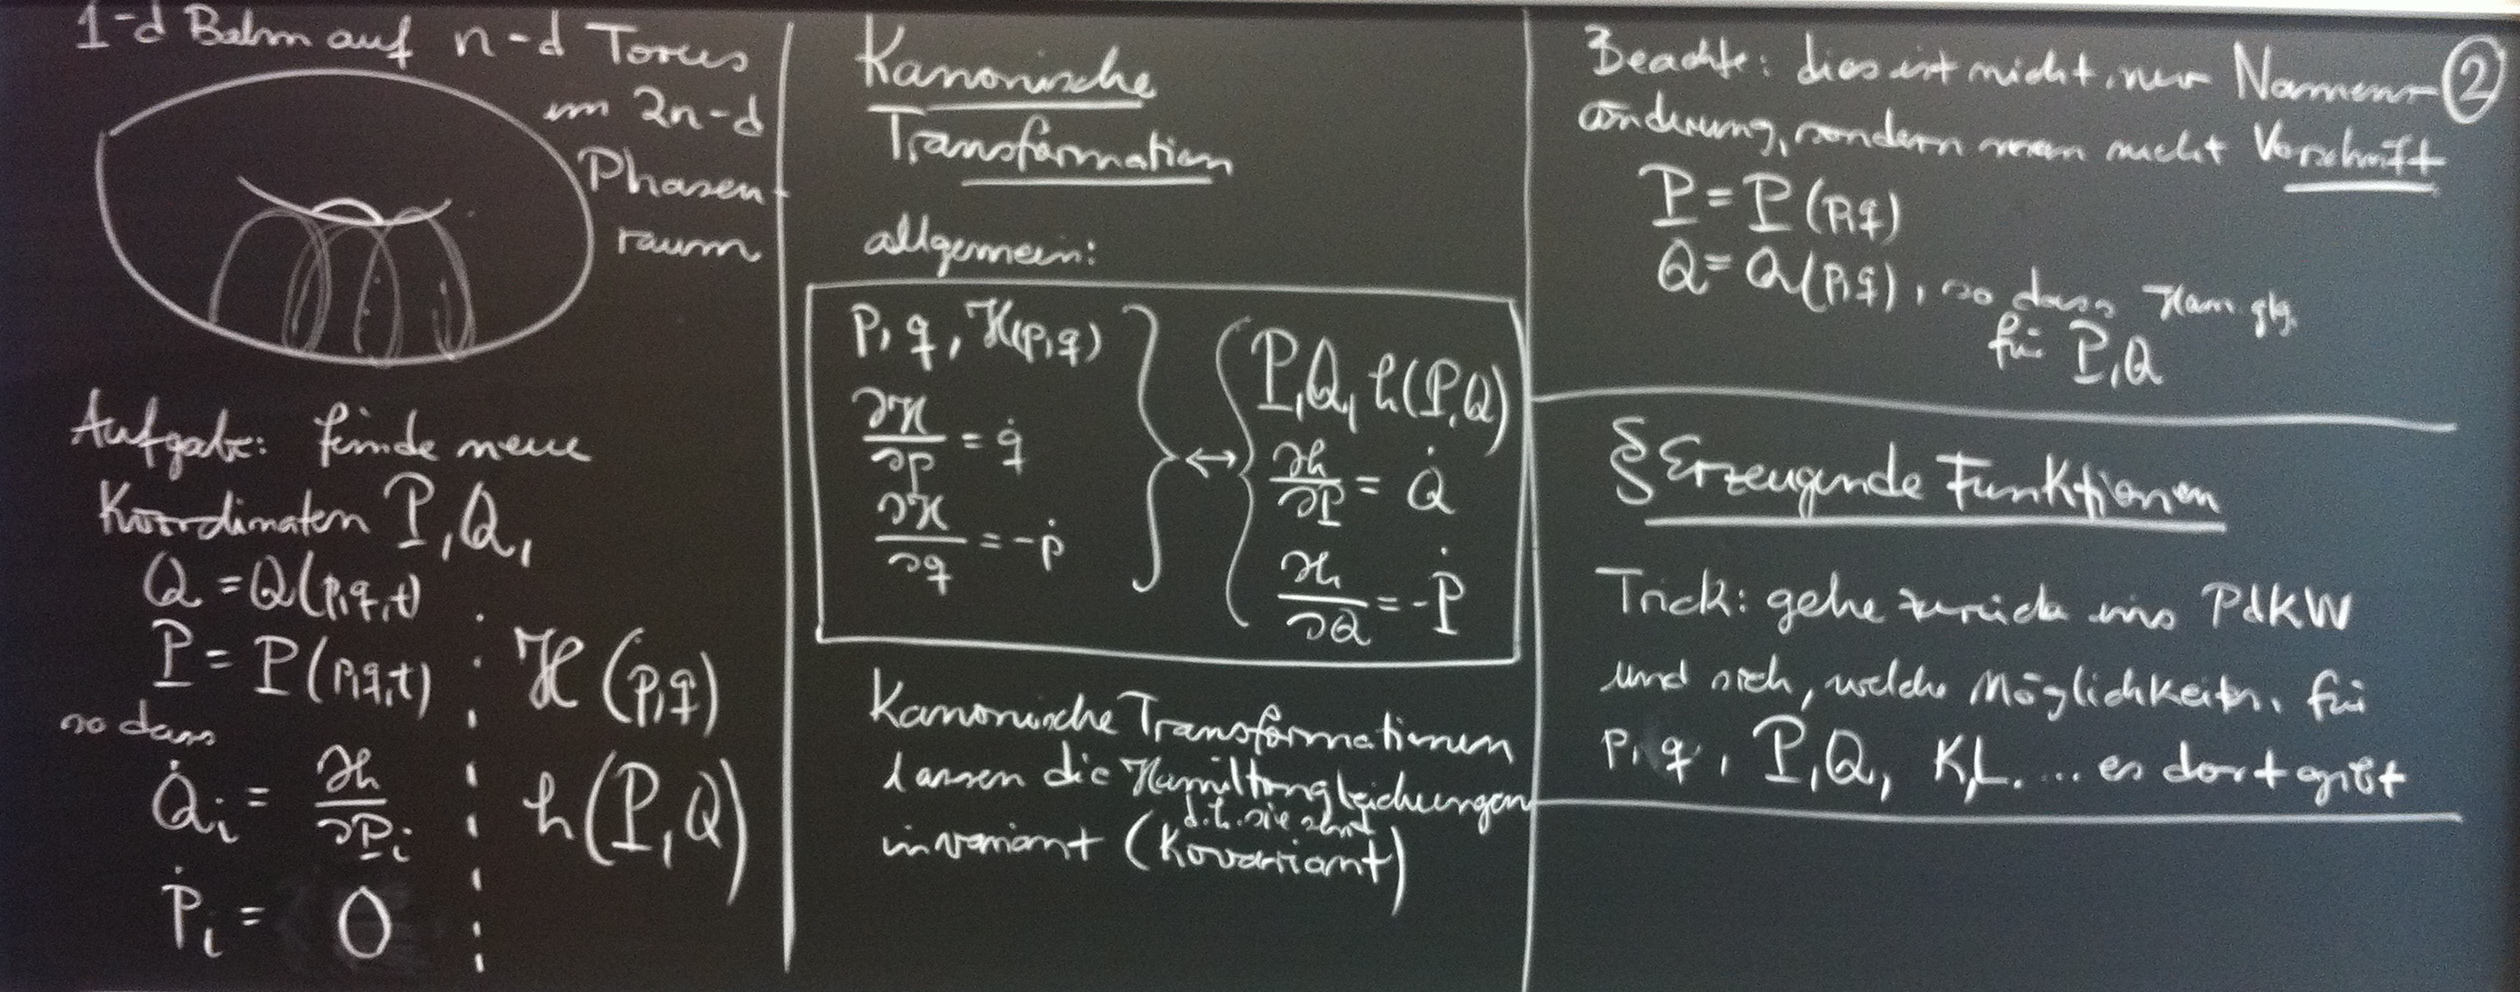 1-d Bahn auf n-d Torus
im 2n-d
Phasen-
raum
Aufgabe: finde neue
Koordinaten P, Q,
Q = Q(p,q,t)
P = P(p,q,t)
so dass
Q̇ᵢ = ∂h/∂Pᵢ
Ṗᵢ = 0
ℋ(p,q)
h(P,Q)
Kanonische
Transformation
allgemein:
p, q, ℋ(p,q)
∂ℋ/∂p = q̇
∂ℋ/∂q = -ṗ
↔
P, Q, h(P,Q)
∂h/∂P = Q̇
∂h/∂Q = -Ṗ
Kanonische Transformationen
lassen die Hamiltongleichungen
d.h. sie sind
invariant (Kovariant)
Beachte: dies ist nicht nur Namens- ②
änderung, sondern man sucht Vorschrift
P = P(p,q)
Q = Q(p,q), so dass Ham. glg.
für P,Q
§ Erzeugende Funktionen
Trick: gehe zurück ins PdKW
und sieh, welche Möglichkeiten für
p, q, P,Q, K,L.... es dort gibt